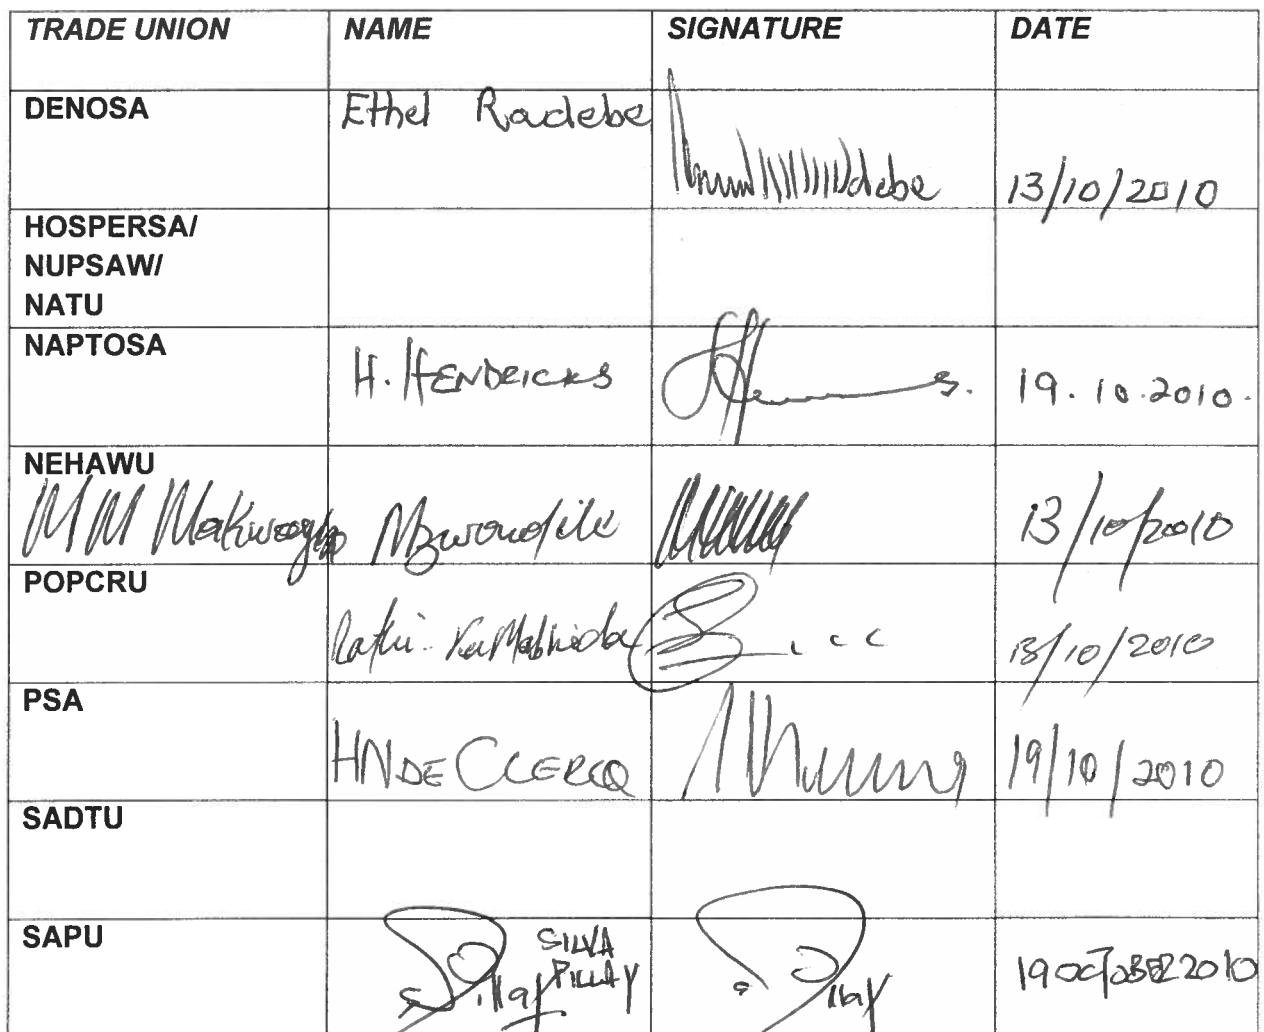 TRADE UNION NAME SIGNATURE DATE
DENOSA Ethel Radebe 13/10/2010
HOSPERSA/
NUPSAW/
NATU
NAPTOSA H. HENDRICKS 19.10.2010.
NEHAWU
MM 13/10/2010
POPCRU
13/10/2010
PSA
HN DE CLERCQ 19/10/2010
SADTU
SAPU SILVA
PILLAY 19 OCTOBER 2010